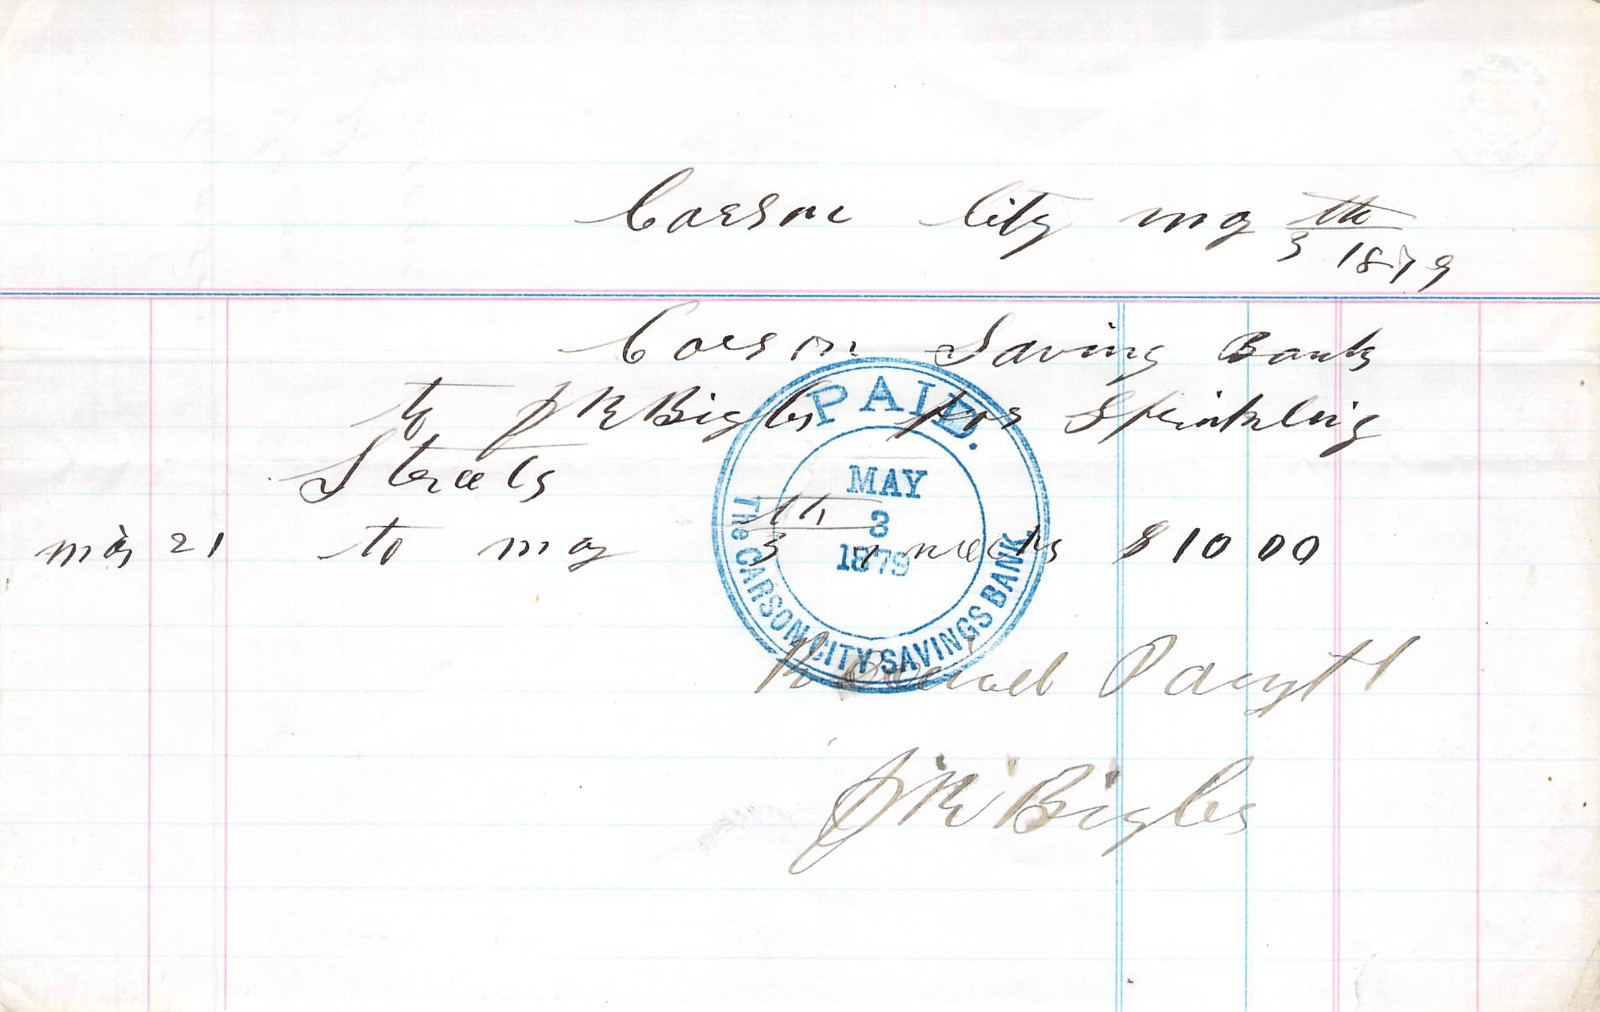 Carson City May 3th 1879
Carson Saving Bank
to J R Bigler for Sprinkling
Streets
21 to May 3th weeks $10 00
PAID.
MAY
3
1879
The CARSON CITY SAVINGS BANK.
Received Payt
J R Bigler